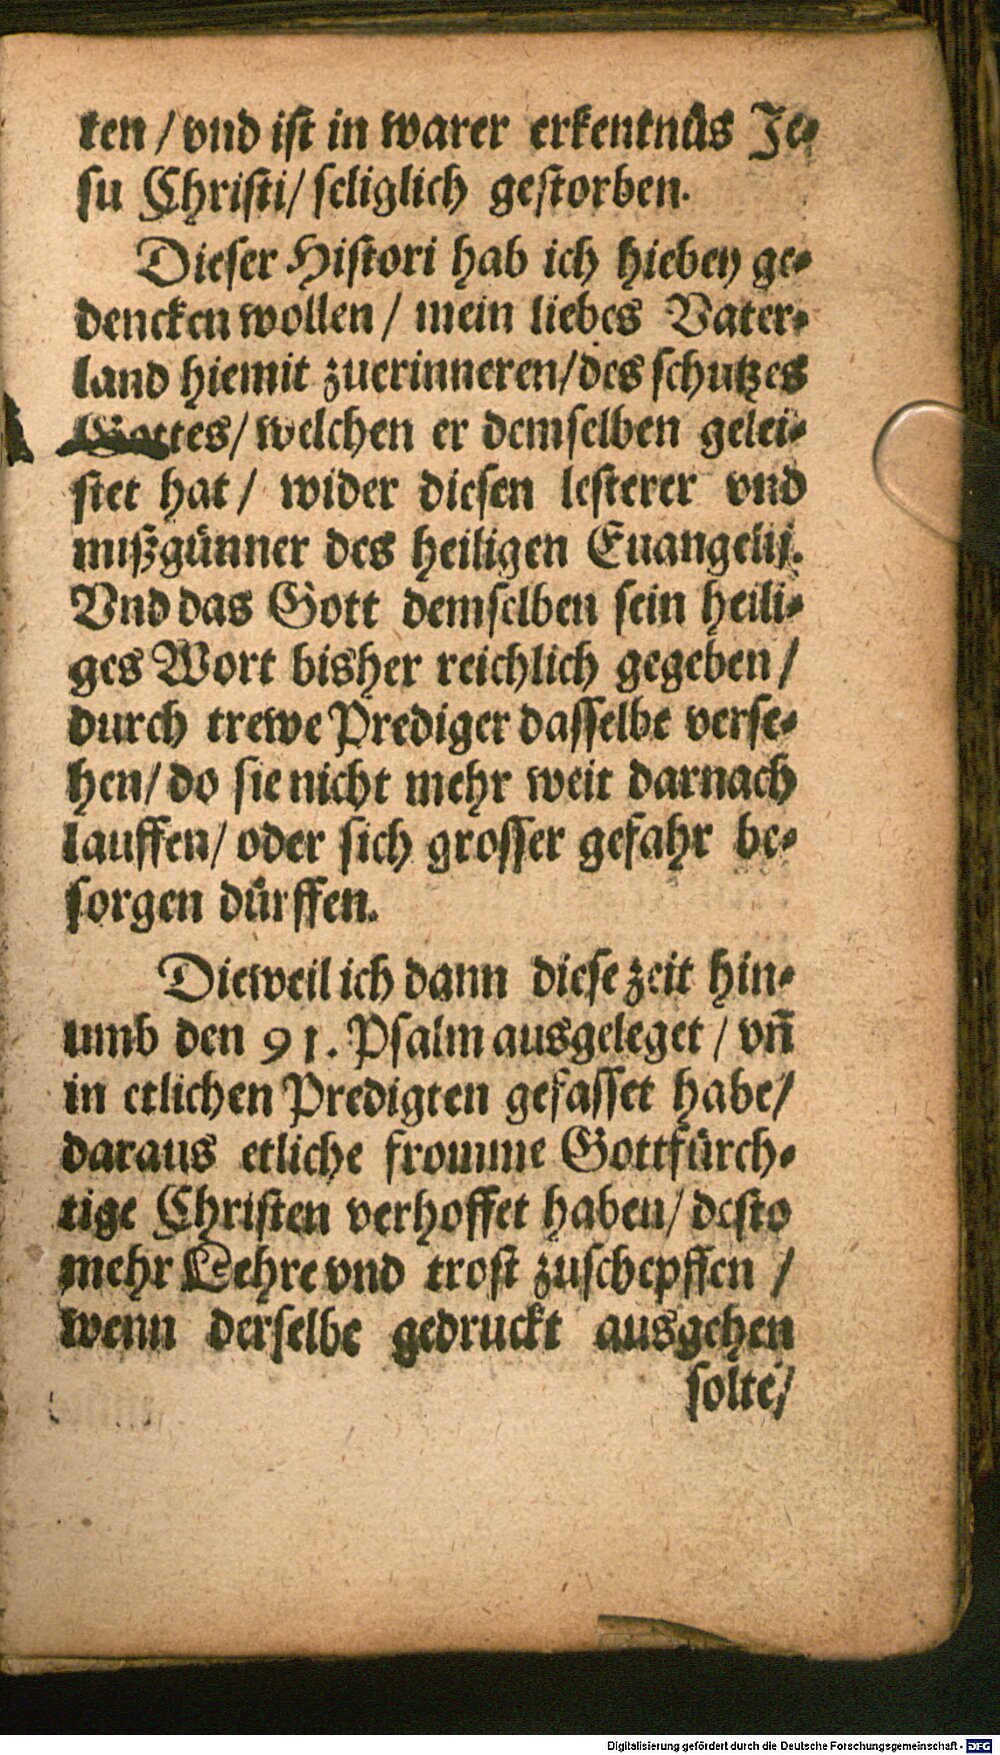 ten / vnd ist in warer erkentnüs Je-
su Christi / seliglich gestorben.
Dieser Histori hab ich hiebey ge-
dencken wollen / mein liebes Vater-
land hiemit zuerinneren / des schutzes
Gottes / welchen er demselben gelei-
stet hat / wider diesen lesterer vnd
mißgünner des heiligen Euangelij.
Vnd das Gott demselben sein heili-
ges Wort bisher reichlich gegeben /
durch trewe Prediger dasselbe verse-
hen / do sie nicht mehr weit darnach
lauffen / oder sich grosser gefahr be-
sorgen dürffen.
Dieweil ich dann diese zeit hin-
umb den 91. Psalm ausgeleget / vn̄
in etlichen Predigten gefasset habe /
daraus etliche fromme Gottfürch-
tige Christen verhoffet haben / desto
mehr Lehre vnd trost zuschepffen /
wenn derselbe gedruckt ausgehen
solte /
Digitalisierung gefördert durch die Deutsche Forschungsgemeinschaft - DFG